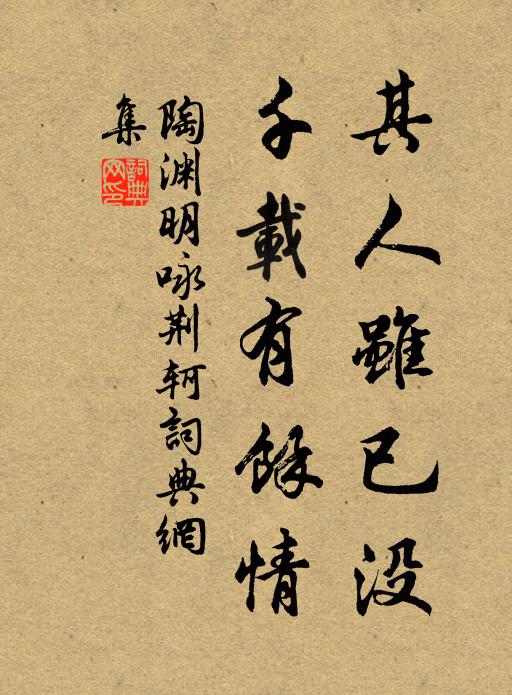 其人雖已没
千載有餘情
陶渊明咏荆轲詞典網
集
詞典
网印